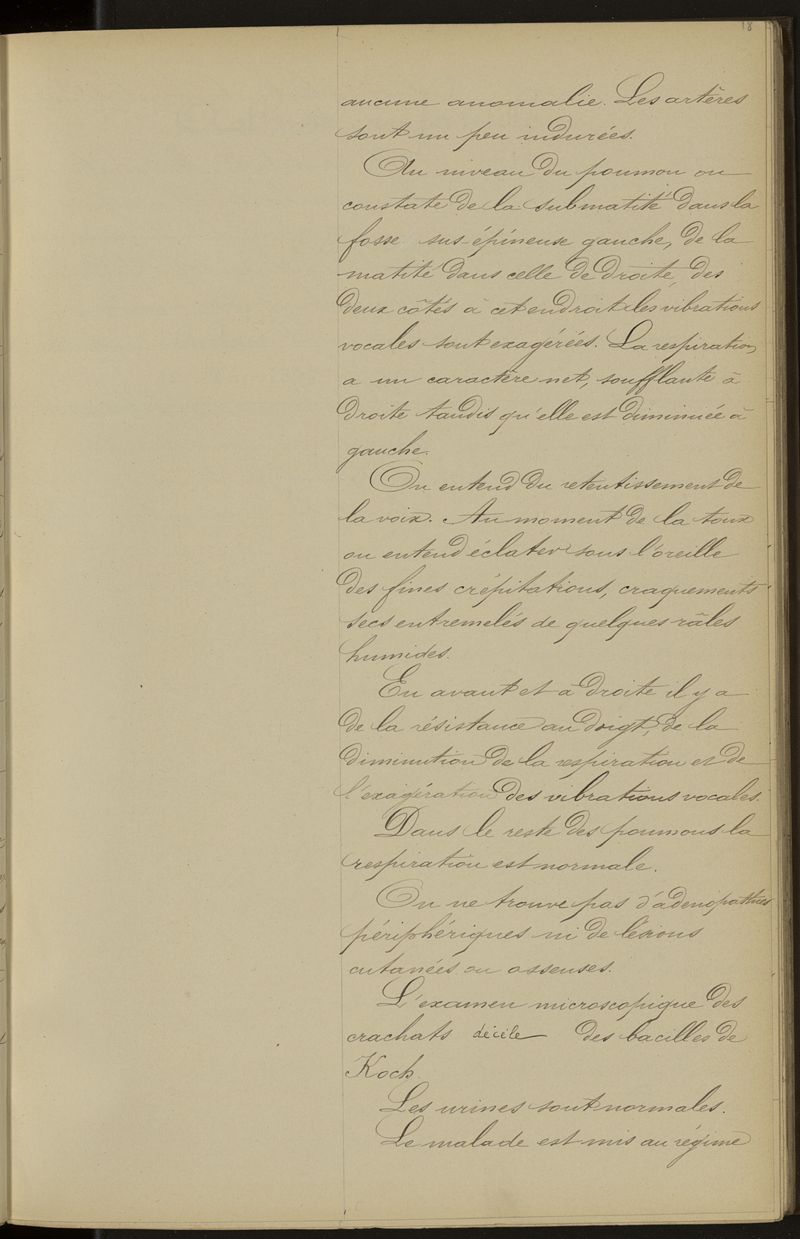 18
aucune anomalie. Les artères
sont un peu indurées.
Au niveau du poumon on
constate de la submatité dans la
fosse sus-épineuse gauche, de la
matité dans celle de droite, des
deux côtés à cet endroit les vibrations
vocales sont exagérées. La respiration
a un caractère net, soufflante à
droite tandis qu'elle est diminuée à
gauche.
On entend du retentissement de
la voix. Au moment de la toux
on entend éclater sous l'oreille
des fines crépitations, craquements
secs entremelés de quelques râles
humides.
En avant et à droite il y a
de la résistance au doigt, de la
diminution de la respiration et de
l'exagération des vibrations vocales.
Dans le reste des poumons la
respiration est normale.
On ne trouve pas d'adénopathies
périphériques ni de lésions
cutanées ou osseuses.
L'examen microscopique des
crachats décèle des bacilles de
Koch.
Les urines sont normales.
Le malade est mis au régime